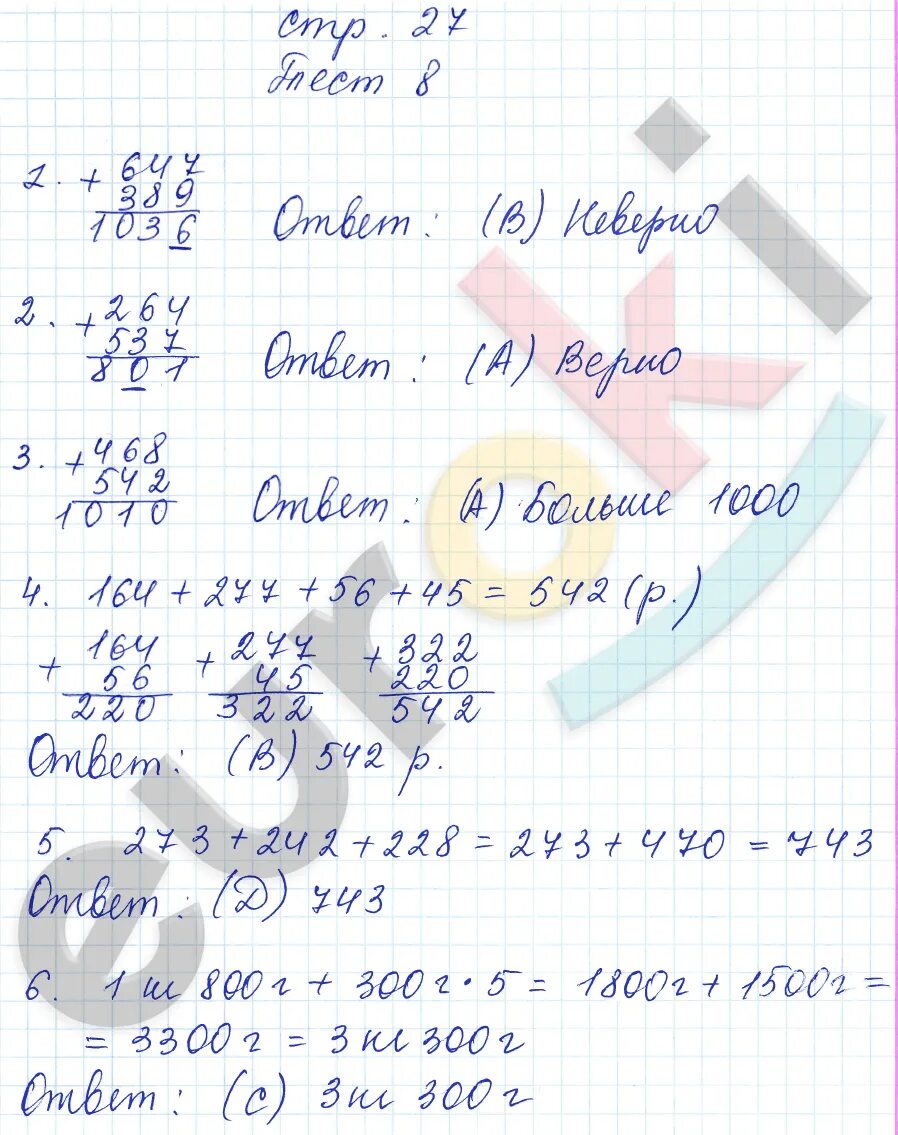 стр. 27
Тест 8
1. + 647
389
1036
Ответ: (В) Неверно
2. + 264
537
801
Ответ: (А) Верно
3. + 468
542
1010
Ответ: (А) Больше 1000
4. 164 + 277 + 56 + 45 = 542 (р.)
+ 164 + 277 + 322
56 45 220
220 322 542
Ответ: (В) 542 р.
5. 273 + 242 + 228 = 273 + 470 = 743
Ответ: (D) 743
6. 1 кг 800 г + 300 г · 5 = 1800 г + 1500 г =
= 3300 г = 3 кг 300 г
Ответ: (С) 3 кг 300 г
euroki